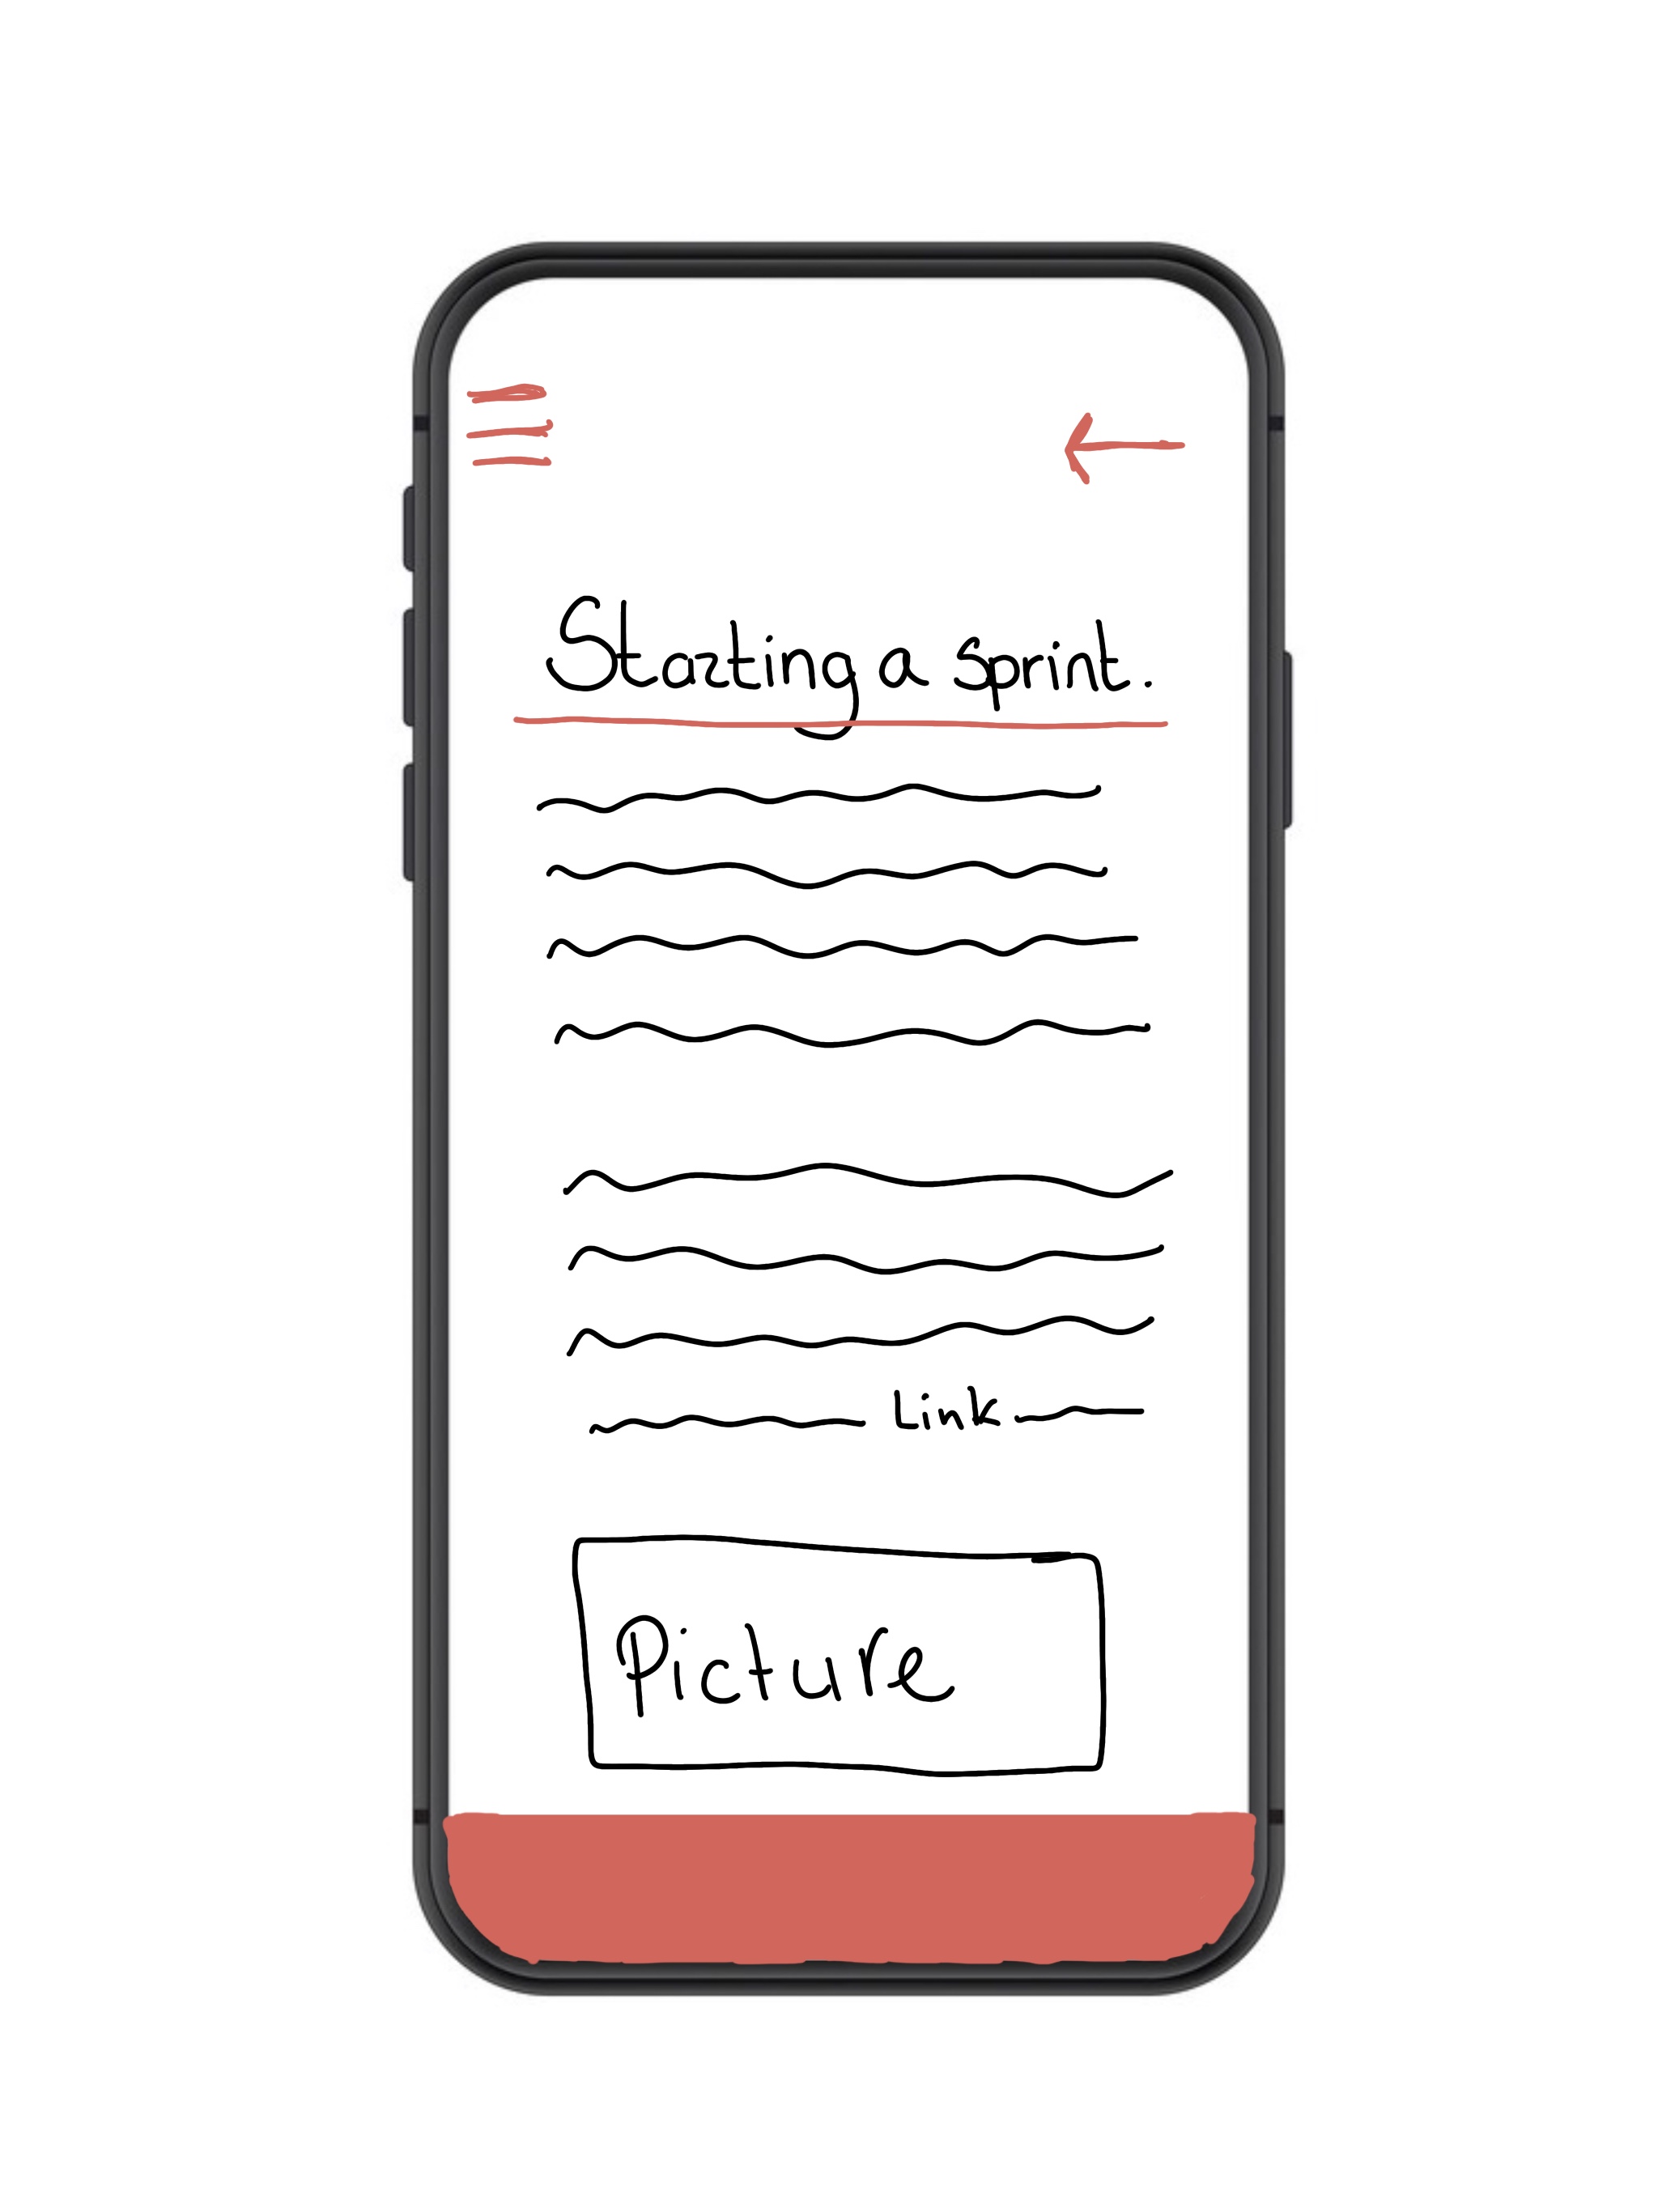 Starting a sprint.
Link
Picture